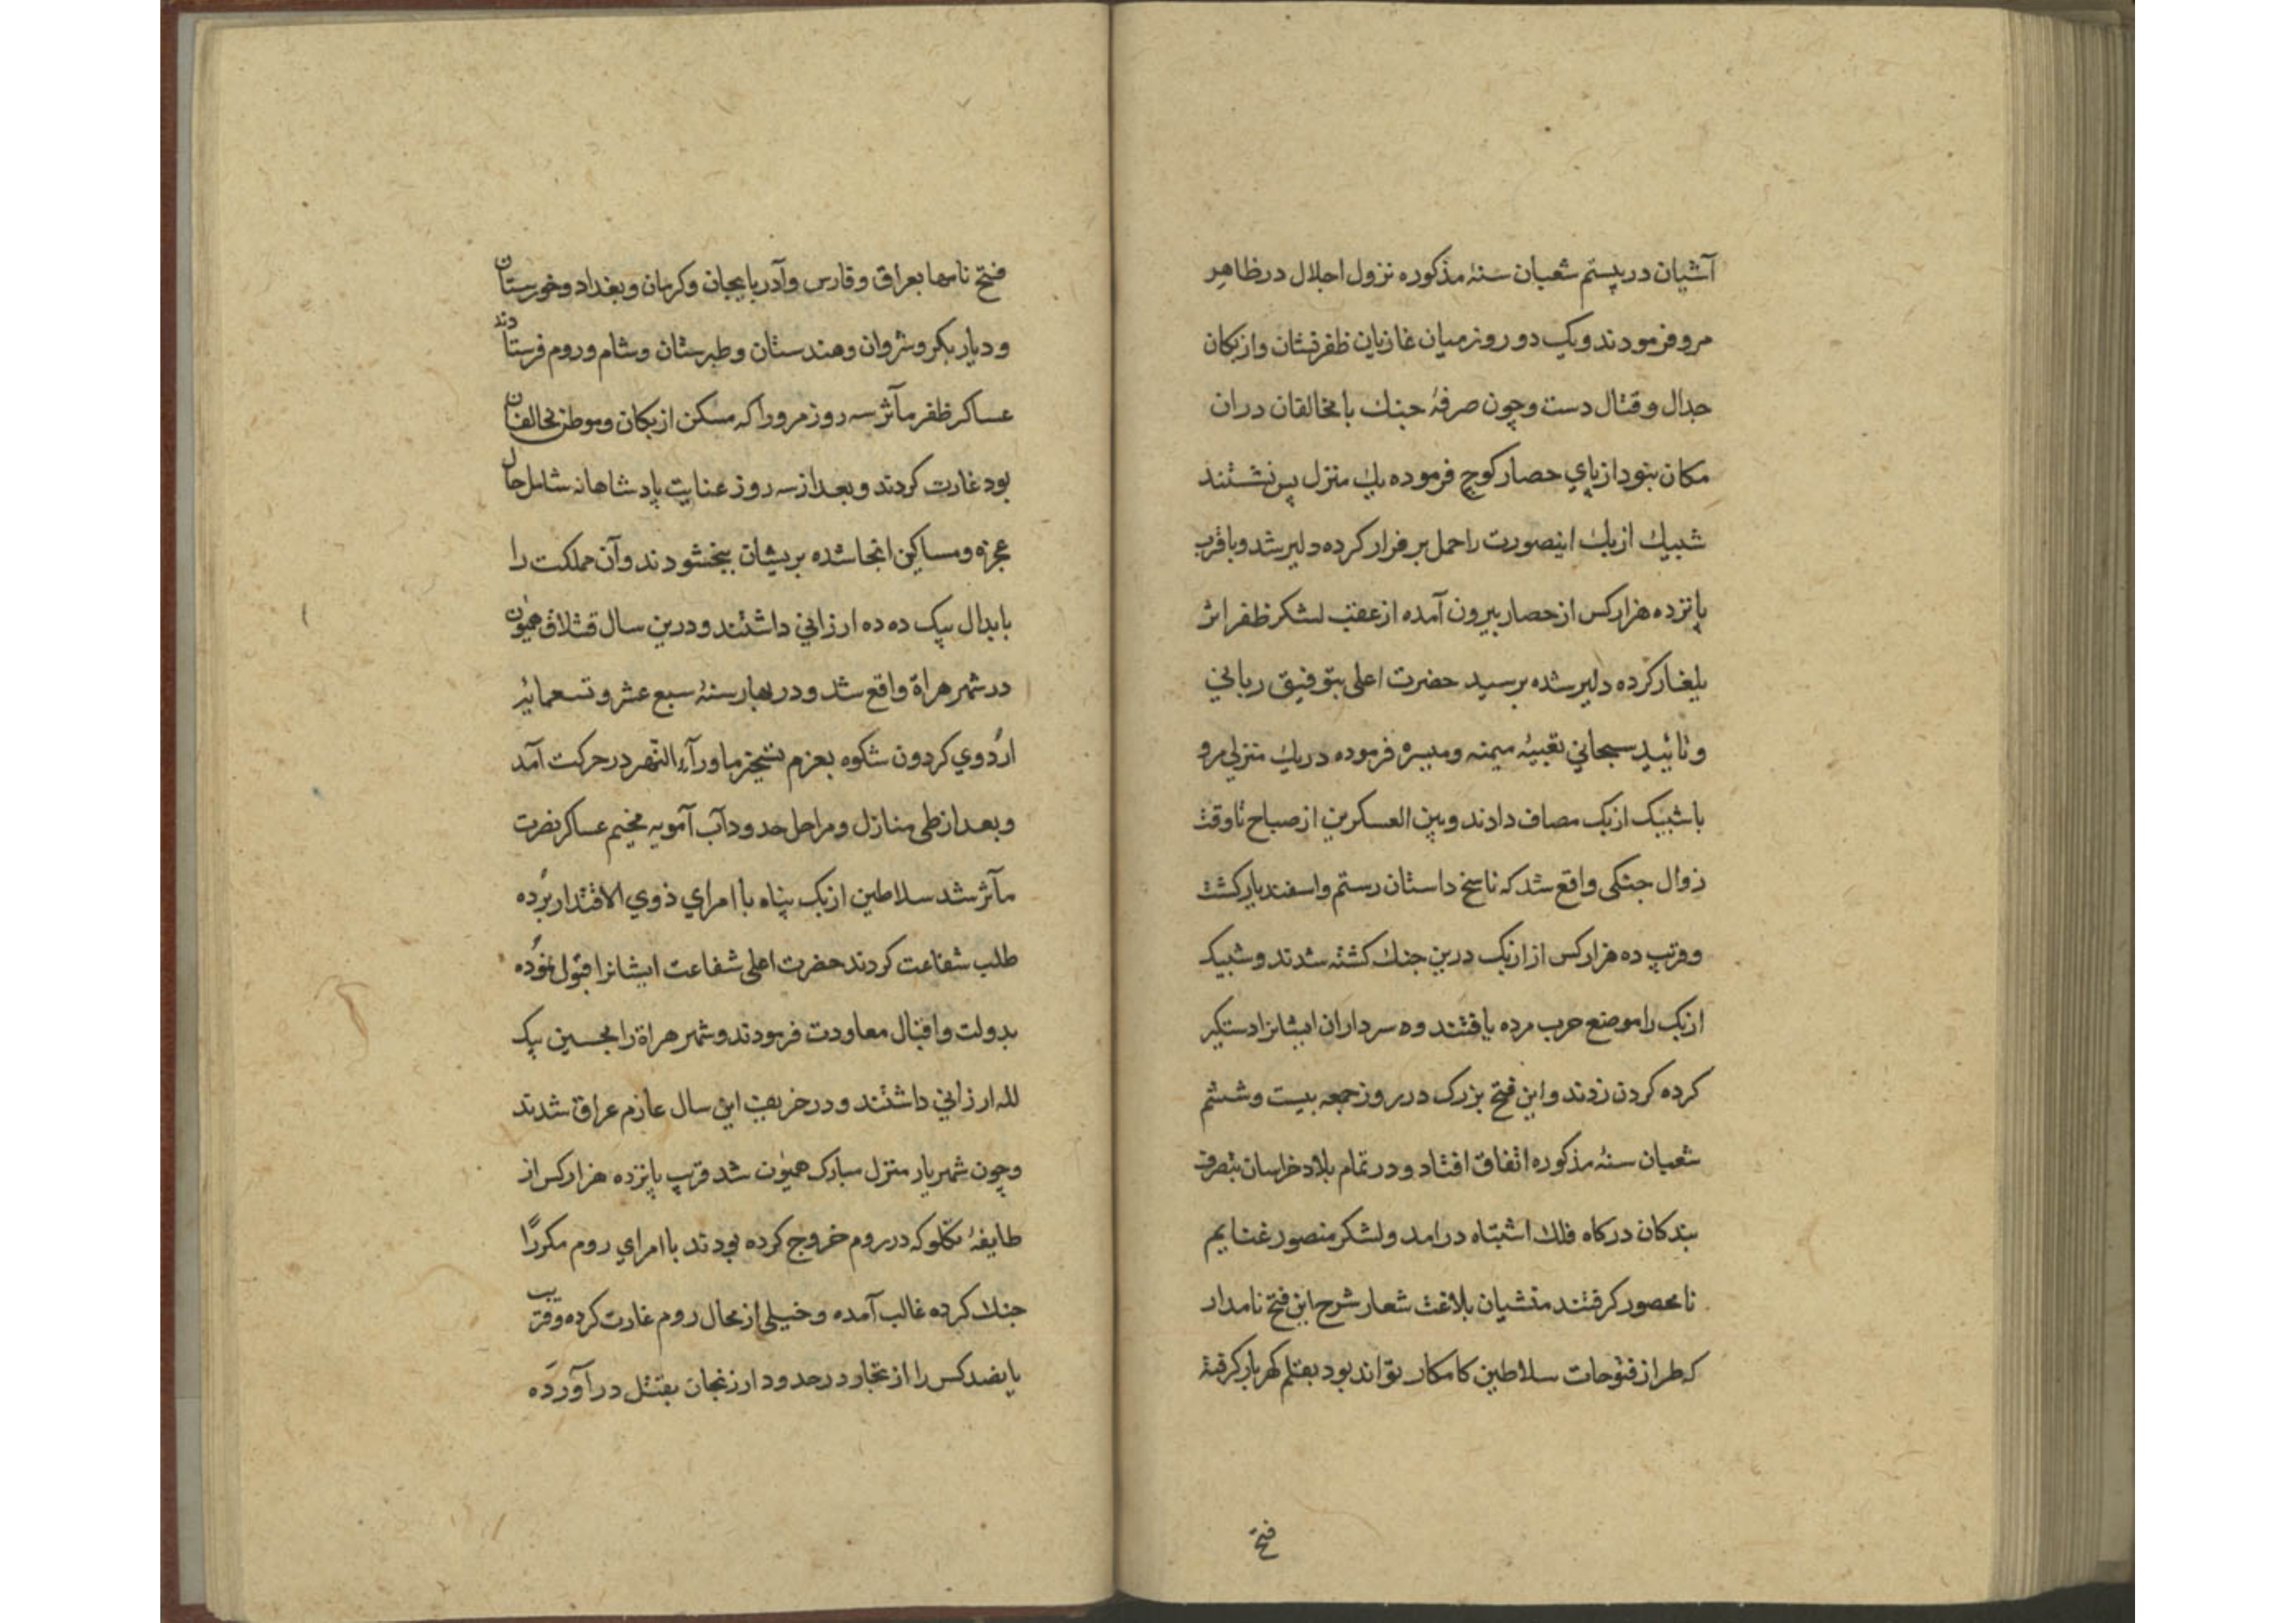 آشیان در بیستم شعبان سنهٔ مذکوره نزول اجلال در ظاهر
مرو فرمودند و یک دو روز میان غازیان ظفرنشان و ازبکان
جدال و قتال دست و چون صرفهٔ جنك با مخالفان دران
مکان نبود از پاي حصار کوچ فرموده یك منزل پس نشستند
شیبك ازبك اینصورت را حمل بر فرار کرده دلیر شد و با قرب
پانزده هزار کس از حصار بیرون آمده از عقب لشکر ظفر اثر
یلغار کرده دلیر شده برسید حضرت اعلی بتوفیق رباني
و تائید سبحاني تعبیهٔ میمنه و میسره فرموده در یك منزلي مرو
با شیبک ازبک مصاف دادند و بین العسکرین از صباح تا وقت
زوال جنکی واقع شد که ناسخ داستان رستم و اسفندیار کشت
و قرب ده هزار کس از ازبک درین جنك کشته شدند و شیبک
ازبک را موضع حرب مرده یافتند و ده سرداران ایشانرا دستکیر
کرده کردن زدند و این فتح بزرک در روز جمعه بیست و ششم
شعبان سنهٔ مذکوره اتفاق افتاد و در تمام بلاد خراسان بتصرف
بندکان درکاه فلك اشتباه درامد و لشکر منصور غنایم
نامحصور کرفتند منشیان بلاغت شعار شرح این فتح نامدار
که طراز فتوحات سلاطین کامکار تواند بود بقلم کهربار کرفته
فتح
فتح نامها بعراق و فارس و آذربایجان و کرمان و بغداد و خورستان
و دیار بکر و شروان و هندستان و طبرستان و شام و روم فرستادند
عساکر ظفر مآثر سه روز مرو را که مسکن ازبکان و موطن مخالفان
بود غارت کردند و بعد از سه روز عنایت پادشاهانه شامل حال
عجزه و مساکین انجا شده بریشان ببخشودند و آن مملکت را
بابدال بیک ده ده ارزاني داشتند و درین سال قشلاق همیون
در شهر هراة واقع شد و در بهار سنهٔ سبع عشر و تسعمائیه
اردوي کردون شکوه بعزم تسخیر ماورآء النهر در حرکت آمد
و بعد از طی منازل و مراحل حدود آب آمویه مخیم عساکر نصرت
مآثر شد سلاطین ازبک پناه با امراي ذوي الاقتدار برده
طلب شفاعت کردند حضرت اعلی شفاعت ایشانرا قبول نموده
بدولت و اقبال معاودت فرمودند و شهر هراة را بحسین بیک
لله ارزاني داشتند و در خریف این سال عازم عراق شدند
و چون شهریار منزل مبارک همیون شد قرب پانزده هزار کس از
طایفهٔ تکلو که در روم خروج کرده بودند با امراي روم مکررًا
جنك کرده غالب آمده و خیلی از محال روم غارت کرده و قرب
پانصد کس را از تجار در حدود ارزنجان بقتل درآورده